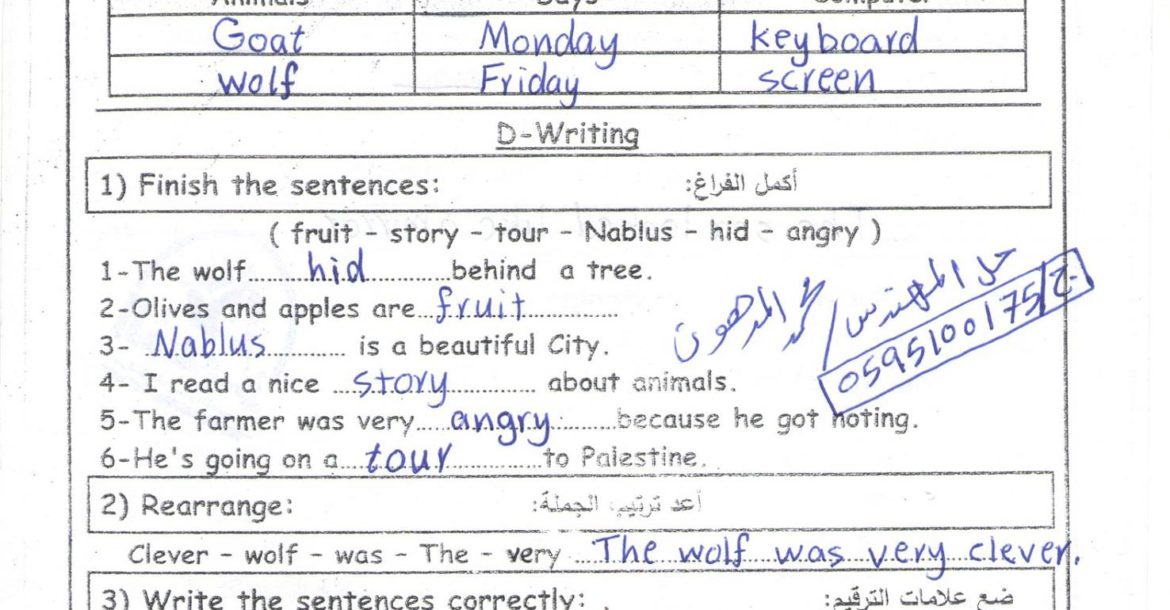 Animals Days Computer
Goat Monday keyboard
wolf Friday screen
D-Writing
1) Finish the sentences: أكمل الفراغ:
( fruit - story - tour - Nablus - hid - angry )
1-The wolf......hid............behind a tree.
2-Olives and apples are...fruit...............
3- .Nablus............ is a beautiful City.
4- I read a nice ...story.............. about animals.
5-The farmer was very.....angry..........because he got noting.
6-He's going on a....tour...............to Palestine.
حل المهندس / محمد المدهون
ج/0595100175
2) Rearrange: أعد ترتيب الجملة:
Clever - wolf - was - The - very ...The wolf was very clever.
3) Write the sentences correctly: ضع علامات الترقيم: